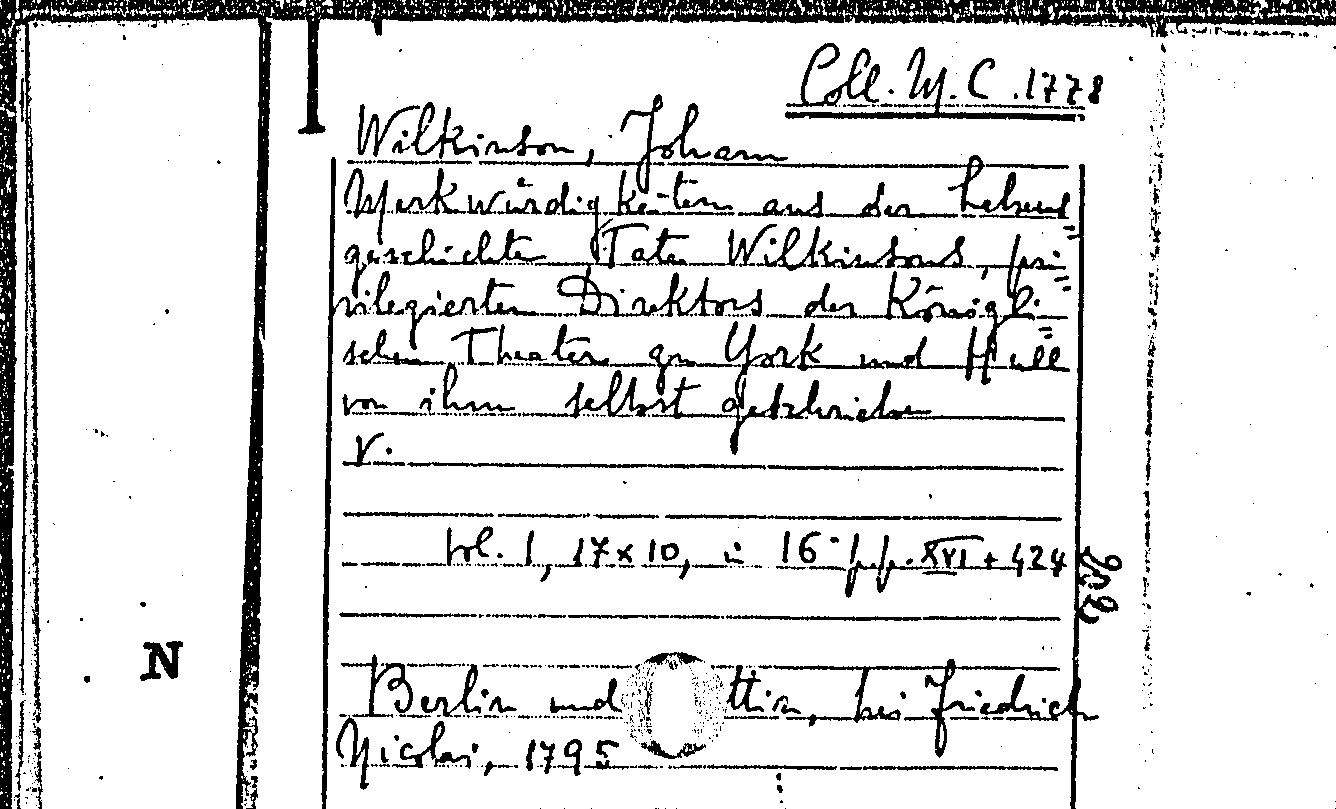 Coll. M. C. 1778
Wilkinson, Johann
Merkwürdigkeiten aus der Lebens=
geschichte Tate Wilkinsons, pri=
vilegierten Direktors der Königli=
schen Theater zu York und Hull
von ihm selbst geschrieben
V.
vol. 1, 17x10, in 16° pp. XVI + 424
Berlin und ttin, bei Friedrich
Nicolai, 1795
N